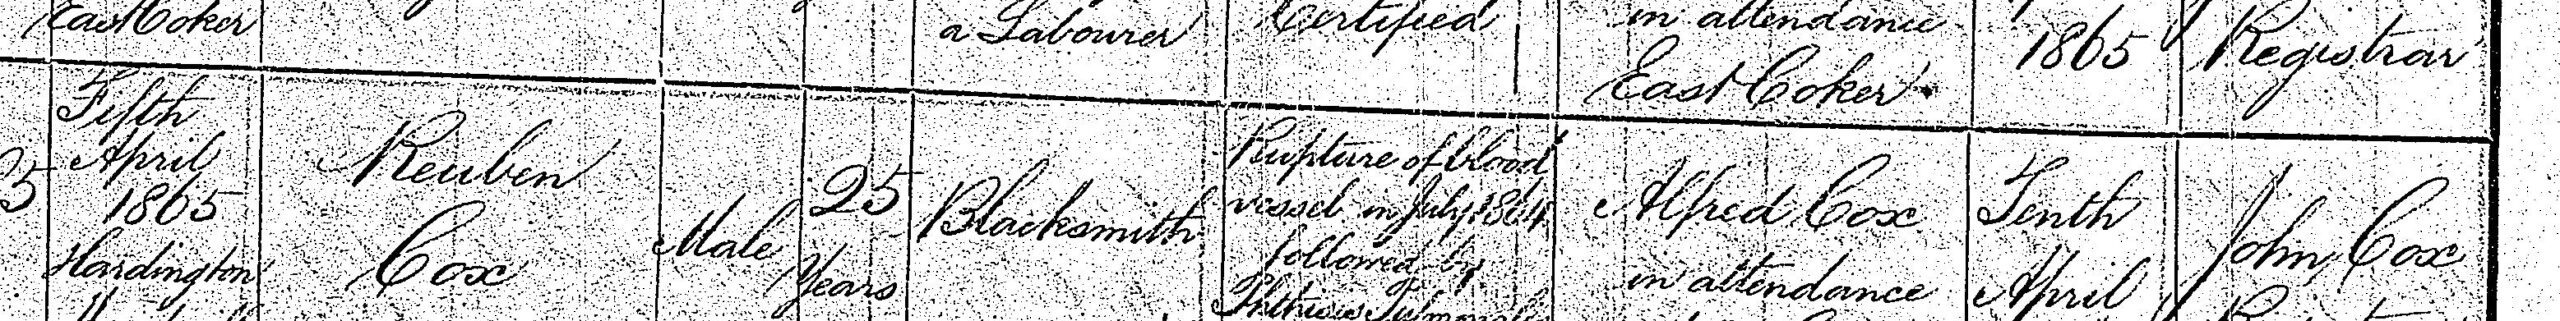 East Coker
a Labourer
Certified
in attendance
East Coker
1865
Registrar
5
Fifth
April
1865
Hardington
Reuben
Cox
Male
25
Years
Blacksmith
Rupture of blood
vessel in July 1864
followed by
Phthisis
Alfred Cox
in attendance
Tenth
April
John Cox